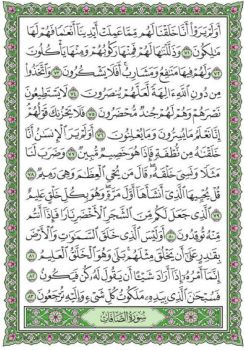 أَوَلَمْ يَرَوْا أَنَّا خَلَقْنَا لَهُم مِّمَّا عَمِلَتْ أَيْدِينَا أَنْعَامًا فَهُمْ لَهَا
مَالِكُونَ ٧١ وَذَلَّلْنَاهَا لَهُمْ فَمِنْهَا رَكُوبُهُمْ وَمِنْهَا يَأْكُلُونَ
٧٢ وَلَهُمْ فِيهَا مَنَافِعُ وَمَشَارِبُ أَفَلَا يَشْكُرُونَ ٧٣ وَاتَّخَذُوا
مِن دُونِ اللَّهِ آلِهَةً لَّعَلَّهُمْ يُنصَرُونَ ٧٤ لَا يَسْتَطِيعُونَ
نَصْرَهُمْ وَهُمْ لَهُمْ جُندٌ مُّحْضَرُونَ ٧٥ فَلَا يَحْزُنكَ قَوْلُهُمْ
إِنَّا نَعْلَمُ مَا يُسِرُّونَ وَمَا يُعْلِنُونَ ٧٦ أَوَلَمْ يَرَ الْإِنسَانُ أَنَّا
خَلَقْنَاهُ مِن نُّطْفَةٍ فَإِذَا هُوَ خَصِيمٌ مُّبِينٌ ٧٧ وَضَرَبَ لَنَا
مَثَلًا وَنَسِيَ خَلْقَهُ قَالَ مَن يُحْيِي الْعِظَامَ وَهِيَ رَمِيمٌ ٧٨
قُلْ يُحْيِيهَا الَّذِي أَنشَأَهَا أَوَّلَ مَرَّةٍ وَهُوَ بِكُلِّ خَلْقٍ عَلِيمٌ
٧٩ الَّذِي جَعَلَ لَكُم مِّنَ الشَّجَرِ الْأَخْضَرِ نَارًا فَإِذَا أَنتُم
مِّنْهُ تُوقِدُونَ ٨٠ أَوَلَيْسَ الَّذِي خَلَقَ السَّمَاوَاتِ وَالْأَرْضَ
بِقَادِرٍ عَلَى أَن يَخْلُقَ مِثْلَهُم بَلَى وَهُوَ الْخَلَّاقُ الْعَلِيمُ ٨١
إِنَّمَا أَمْرُهُ إِذَا أَرَادَ شَيْئًا أَن يَقُولَ لَهُ كُن فَيَكُونُ ٨٢
فَسُبْحَانَ الَّذِي بِيَدِهِ مَلَكُوتُ كُلِّ شَيْءٍ وَإِلَيْهِ تُرْجَعُونَ ٨٣
سُورَةُ الصَّافَّاتِ